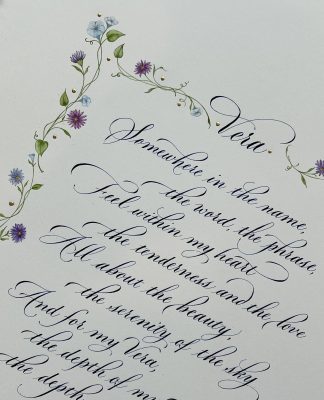 Vera
Somewhere in the name,
the word, the phrase,
Feel within my heart
the tenderness and the love
All about the beauty,
the serenity of the sky
And for my Vera,
the depth of my
the depth